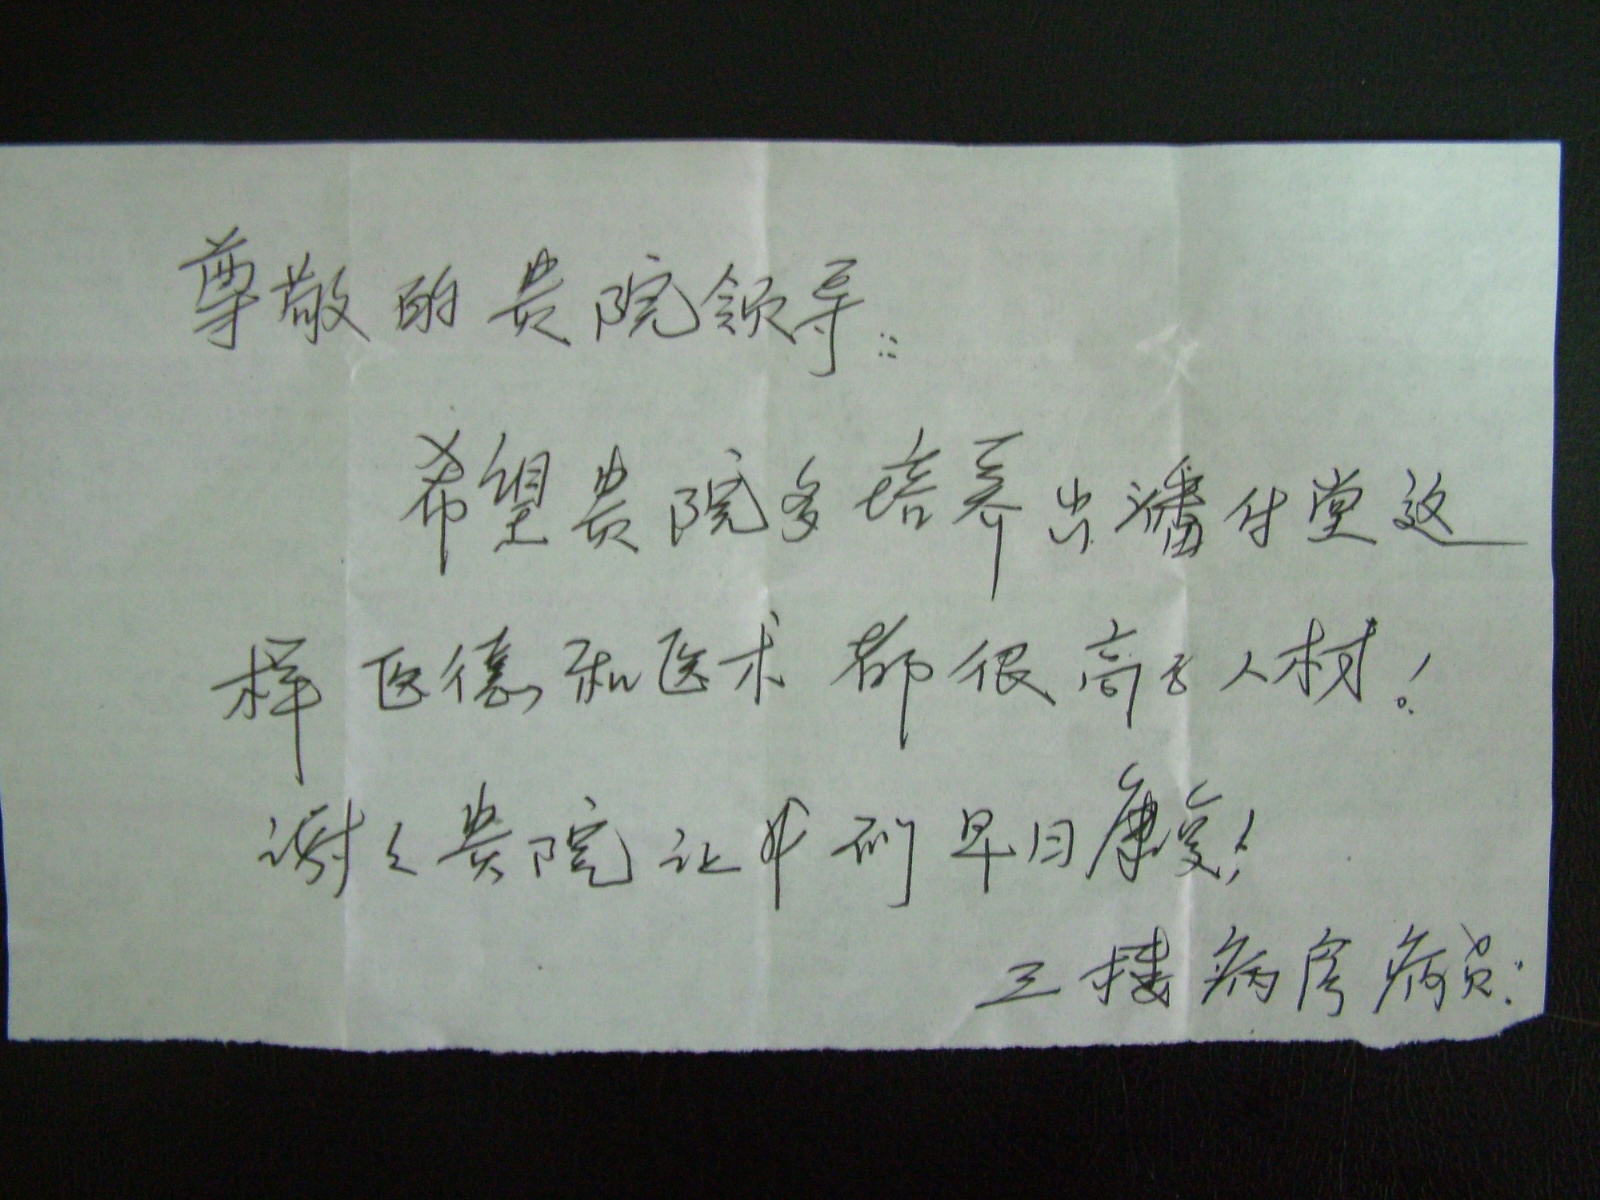 尊敬的贵院领导::
希望贵院多培养出潘付堂这
样医德和医术都很高的人材!
谢谢贵院让我们早日康复!
三楼病房病员: